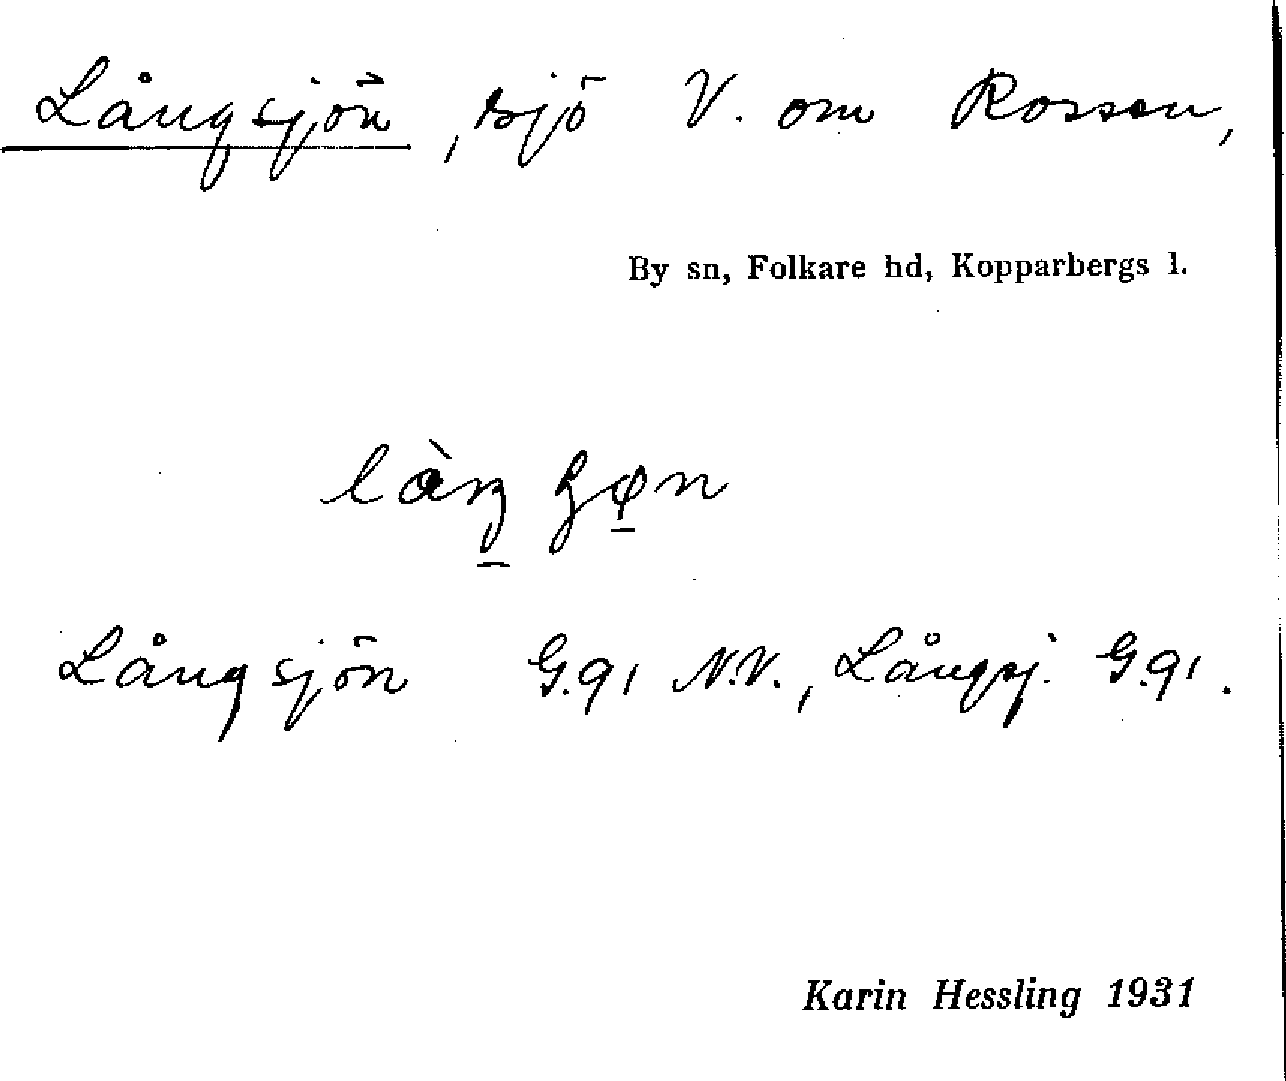 Långsjön, sjö V. om Rossen,
By sn, Folkare hd, Kopparbergs l.
Långsjön G.91 N.V., Långsj. G.91.
Karin Hessling 1931